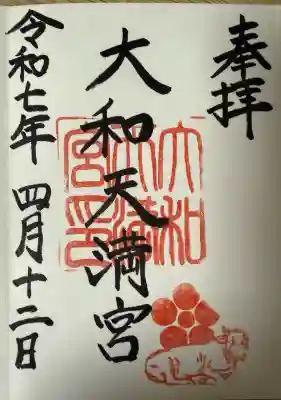 奉拝
大和天満宮
大和
天満
宮印
令和七年 四月十二日